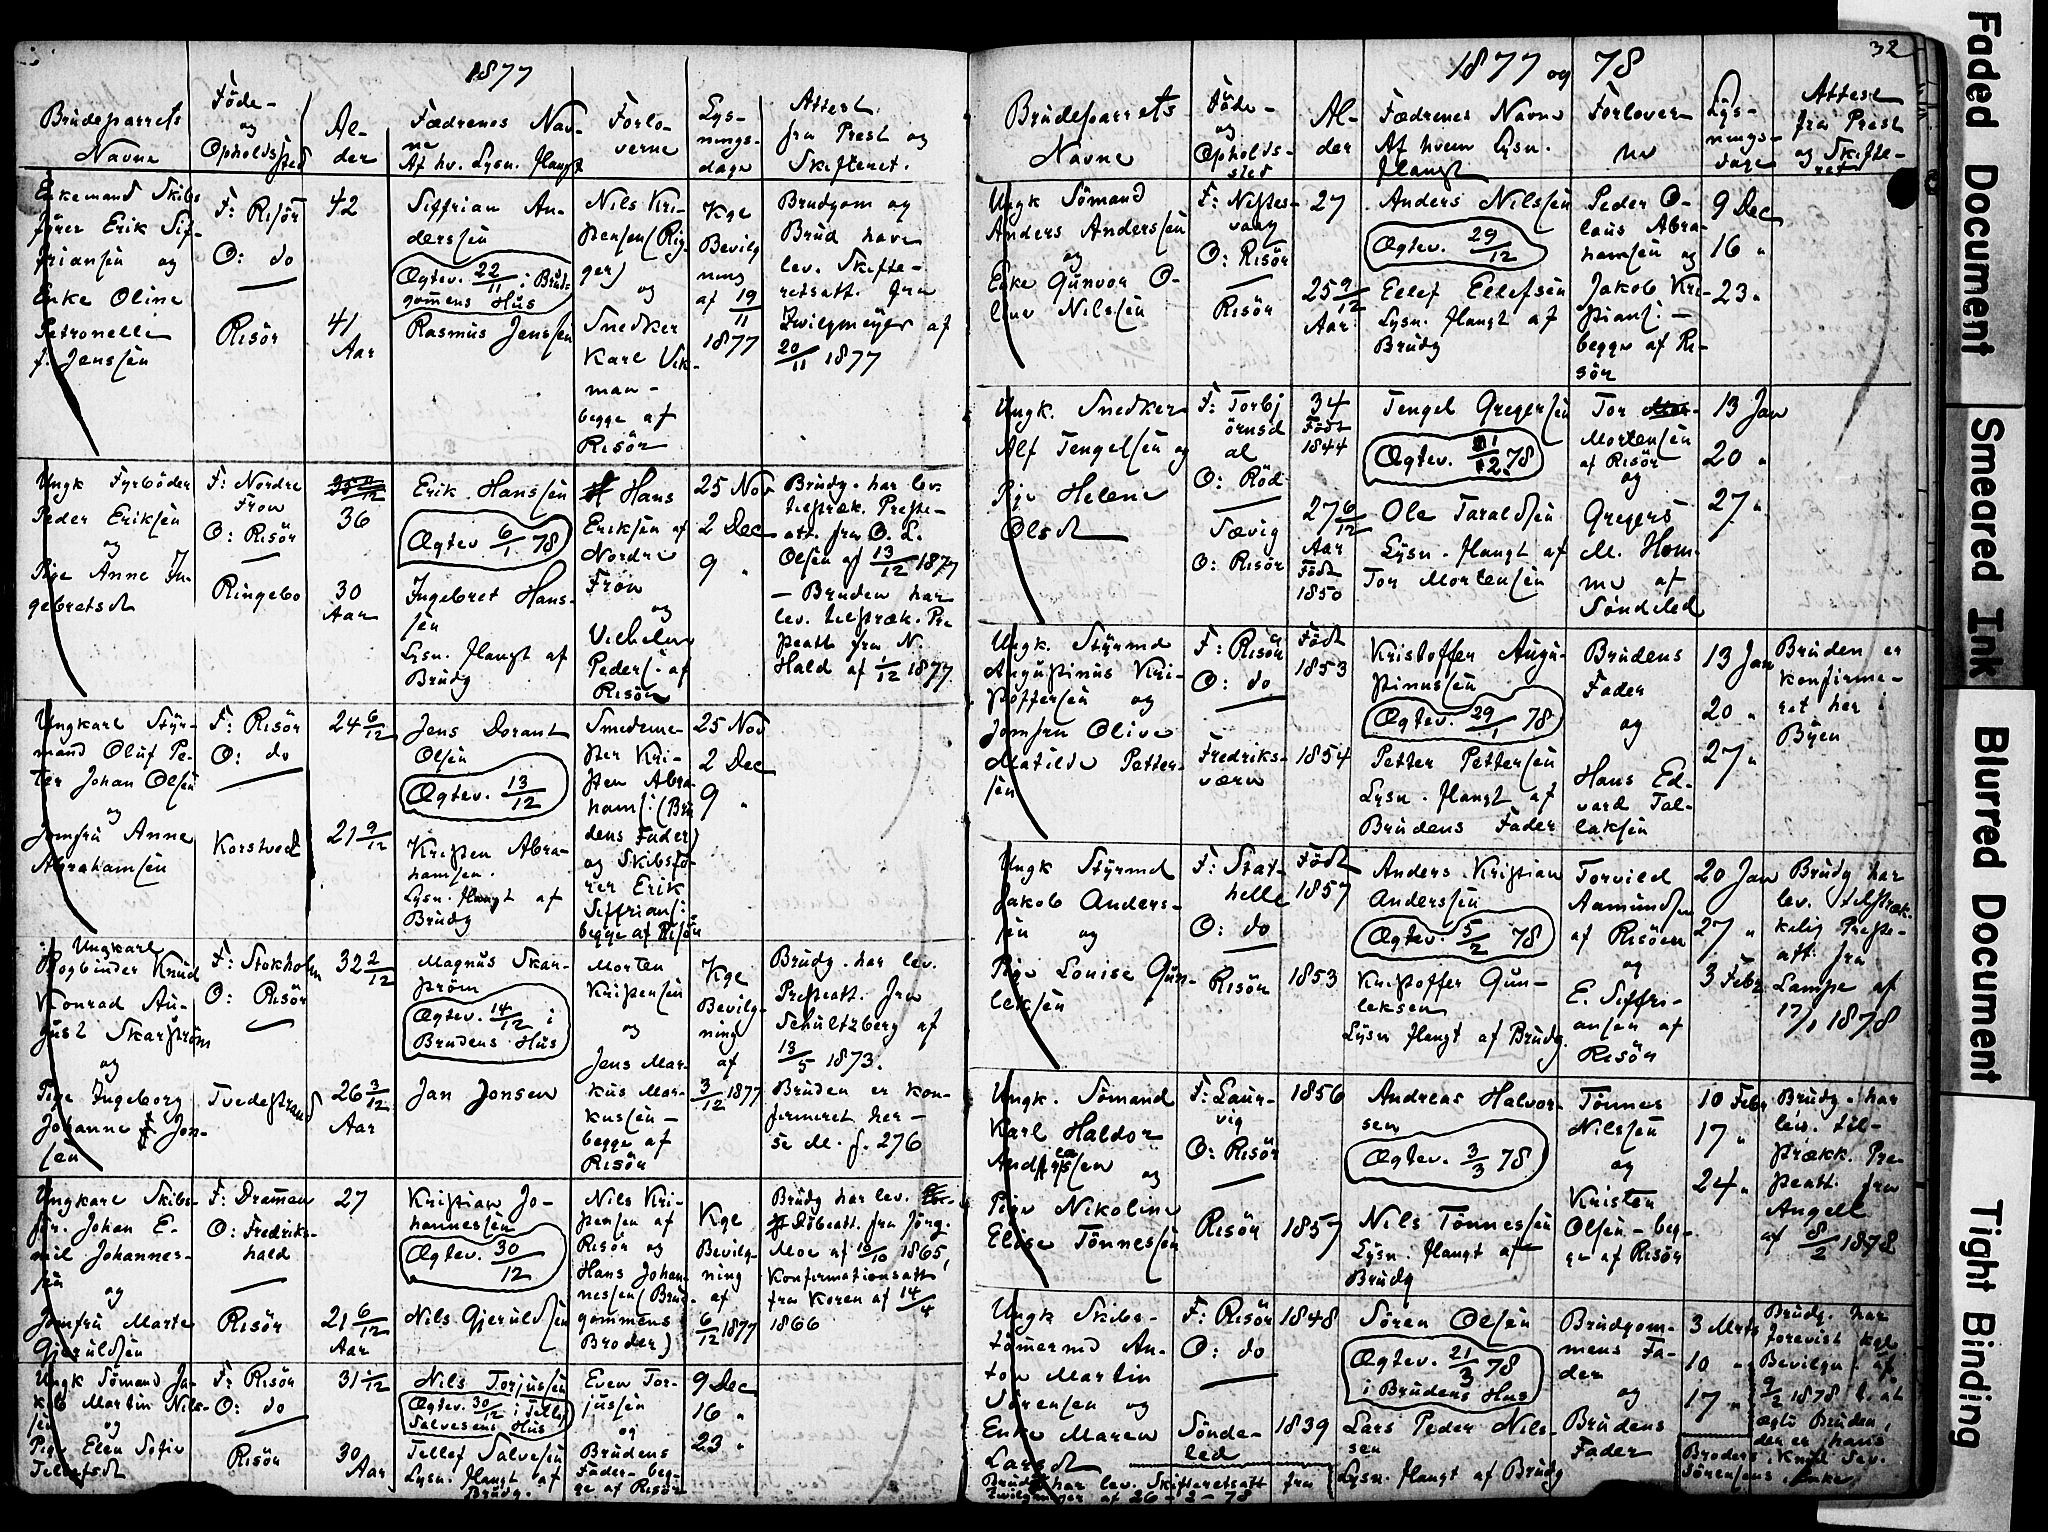 1877
Brudeparrets
Navne
Föde-
og
Opholds
sted
Al-
der
Fædrenes Nav-
ne
Af hv. Lysn. flangt
Forlo-
verne
Lys-
nings-
dage
Attest
fra Prest og
Skifteret.
Enkemand Skibs
fører Erik Sif-
friansen og
Enke Oline
Petronelle
f. Jenssen
F: Risör
O: do
Risör
42
41
Aar
Siffrian An-
derssen
Ægtev. 22/11 i Brud-
gommens Hus
Rasmus Jenssen
Nils Kri-
stensen (Rig-
ger)
og
Snedker
Karl Vik-
man -
begge af
Risör
Kge
Bevilg
ning
af 19/11
1877
Brudgom og
Brud have
lev. Skifte-
retsatt. fra
Zwilgmeyer af
20/11 1877
Ungk Fyrböder
Peder Eriksen
og
Pige Anne In-
gebretsdt
F: Nordre
Fron
O: Risör
Ringebo
36
30
Aar
Erik Hanssen
Ægtev 6/1 78
Ingebret Hans-
sen
Lysn. flangt af
Brudg
Hans
Eriksen af
Nordre
Fron
og
Vilhelm
Peders: af
Risör
25 Nov
2 Dec
9 "
Brudg. har lev.
tilstræk. Preste-
att. fra O. L.
Olsen af 13/12 1877
- Bruden har
lev. tilstræk. Pre
steatt fra N.
Hald af 1/12 1877
Ungkarl Styr-
mand Oluf Pe-
ter Johan Olsen
og
Jomfru Anne
Abrahamsen
F: Risör
O: do
Korstved
24 6/12
21 9/12
Jens Dorant
Olsen
Ægtev. 13/12
Kristen Abra-
hamsen.
Lysn. flangt af
Brudg
Smedeme-
ster Kri-
sten Abra
hams: (Bru
dens Fader)
og Skibsfö-
rer Erik
Siffrians:
begge af Risör
25 Nov
2 Dec
9 "
Ungkarl
Bogbinder Knud
Konrad Au-
gust Skarström
og
Pige Ingeborg
Johanne Jon-
sen
F: Stokholm
O: Risör
Tvedestrand
32 2/12
26 3/12
Aar
Magnus Skar-
ström
Ægtev. 14/12 i
Brudens Hus
Jan Jonsen
Morten
Kristensen
og
Jens Mar-
kus Mar-
kussen -
begge af
Risör
Kge
Bevilg-
ning
af
3/12 1877
Brudg. har lev.
Presteatt. fra
Schultzberg af
13/5 1873.
Bruden er kon-
firmeret her -
se M. f. 276
Ungkarl Skibs-
för. Johan E-
mil Johannes-
sen
og
Jomfru Marte
Gjeruldsen
F: Dramen
O: Fredriks-
hald
Risör
27
21 6/12
Aar
Kristian Jo-
hannessen
Ægtev. 30/12
Nils Gjeruldsen
Nils Kri-
stensen af
Risör og
Hans Johan
nessen (Brud-
gommens
Broder)
Kge
Bevilg-
ning
af
6/12 1877
Brudg har lev.
Döbeatt. fra Jörg.
Moe af 10/10 1865,
Konfirmationsatt
fra Koren af 14/4
1866
Ungk Sömand Ja-
kob Martin Nils-
sen
og
Pige Elen Sofie
Tellefsdt
F: Risör
O: do
Risör
31 1/12
30
Aar
Nils Torjussen
Ægtev. 30/12 i Tellef
Salvesens Hus
Tellef Salvesen
Lysn. flangt af
Brudg.
Even Tor-
jussen
og
Brudens
Fader- beg-
ge af Risör
9 Dec
16 "
23 "
32
1877 og 78
Brudeparrets
Navne
Föde-
og
Opholds-
sted
Al-
der
Fædrenes Navne
Af hvem Lysn.
flangt
Forlover
ne
Lys-
nings-
dage
Attest
fra Prest
og Skifte-
ret
Ungk Sömand
Anders Anderssen
og
Enke Gunvor O-
line Nilssen
F: Nestes-
vaag
O: Risör
Risör
27
25 9/12
Aar
Anders Nilssen
Ægtev. 29/12
Ellef Ellefsen
Lysn. flangt af
Brudg
Peder O-
laus Abra-
hamsen og
Jakob Kri-
stians: -
begge af Ri-
sör
9 Dec
16 "
23 "
Ungk. Snedker
Alf Tengelsen og
Pige Helene
Olsdt
F: Torbj
örnsd
al
O: Röd
Sævig
O: Risör
34
Födt
1844
27 6/12
Aar
Födt
1850
Tengel Gregersen
Ægtev. 78
Ole Taraldsen
Lysn. flangt af
Tor Mortensen
Tor
Mortensen
af Risör
og
Gregers
M. Hom-
me af
Söndeled
13 Jan
20 "
27 "
Ungk. Styrmd
Augustinus Kri-
stoffersen og
Jomfru Olive
Matilde Petter-
sen
F: Risör
O: do
Fredriks-
værn
Födt
1853
1854
Kristoffer Augu-
stinussen
Ægtev. 29/1 78
Petter Pettersen
Lysn. flangt af
Brudens Fader
Brudens
Fader
og
Hans Ed-
vard Tal-
laksen
13 Jan
20 "
27 "
Bruden er
konfirme-
ret her i
Byen
Ungk Styrmd
Jakob Anders-
sen og
Pige Louise Gun-
leksen
F: Stat-
helle
O: do
Risör
Födt
1857
1853
Anders Kristian
Anderssen
Ægtev. 5/2 78
Kristoffer Gun-
leksen
Lysn flangt af Brudg.
Torvild
Aamundsen
af Risöen
og
E. Siffri-
ansen af
Risör
20 Jan
27 "
3 Febr
Brudg har
lev. tilstræk-
kelig Preste-
att. fra
Lampe af
17/1 1878
Ungk. Sömand
Karl Haldor
Andreassen og
Pige Nikoline
Elise Tönnessen
F: Laur-
vig
O: Risör
Risör
1856
1857
Andreas Halvor-
sen
Ægtev. 3/3 78
Nils Tönnessen
Lysn. flangt af
Brudg
Tönnes
Nilssen
og
Kristen
Olsen - beg-
ge af Risör
10 Febr
17 "
24 "
Brudg. har
lev. til-
strækk. Pre-
steatt. fra
Angell
af 8/2 1878
Ungk Skibs-
tömermd An-
ton Martin
Sörensen og
Enke Maren
Larsdt
F: Risör
O: do
Sönde-
led
1848
1839
Sören Olsen
Ægtev. 21/3 78
i Brudens Hus
Lars Peder Nils-
sen
Lysn. flangt af Brudg
Brudgom-
mens Fa-
der
og
Brudens
Fader
3 Mrts
10 "
17 "
Brudg. har
forevist kgl
Bevilgn. af
9/2 1878 t. at
ægte Bruden,
der er hans
Broders, Knud Sev.
Sörensens, Enke.
Bruden har lev. Skifteretsatt fra
Zwilgmeyer af 26-2-78
Faded Document
Smeared Ink
Blurred Document
Tight Binding